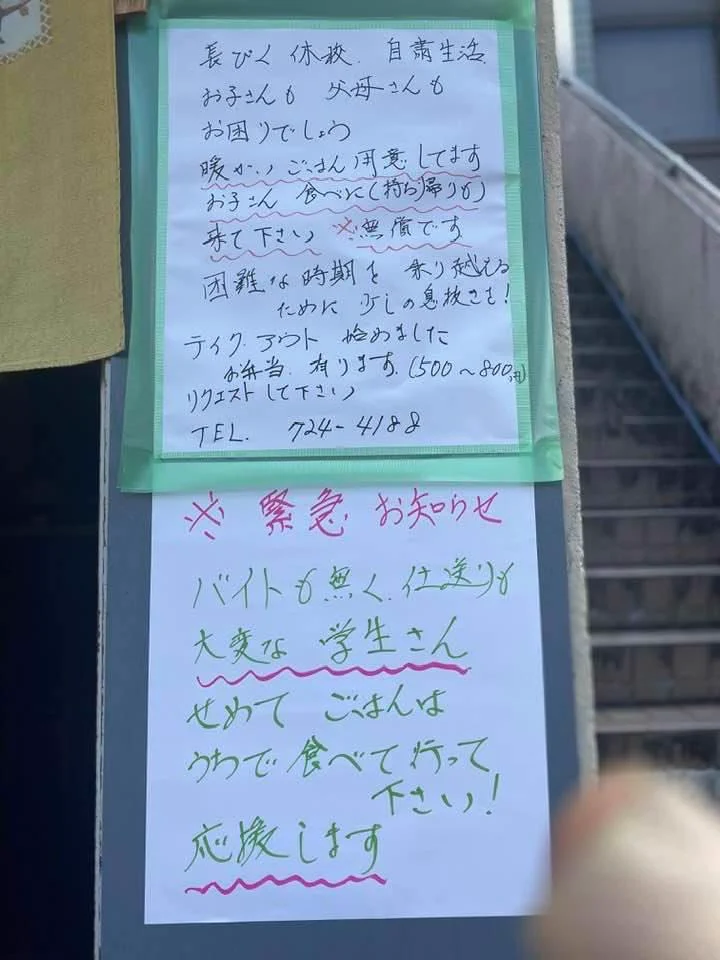 長びく 休校、自粛生活、
お子さんも 父母さんも
お困りでしょう
暖かい ごはん用意してます
お子さん 食べに(持ち帰りも)
来て下さい ※無償です
困難な時期を 乗り越える
ために 少しの息抜きを!
テイク アウト 始めました
お弁当 有ります (500～800円)
リクエストして下さい
TEL. 724-4188
※ 緊急 お知らせ
バイトも無く、仕送りも
大変な 学生さん
せめて ごはんは
うちで 食べて 行って
下さい!
応援します